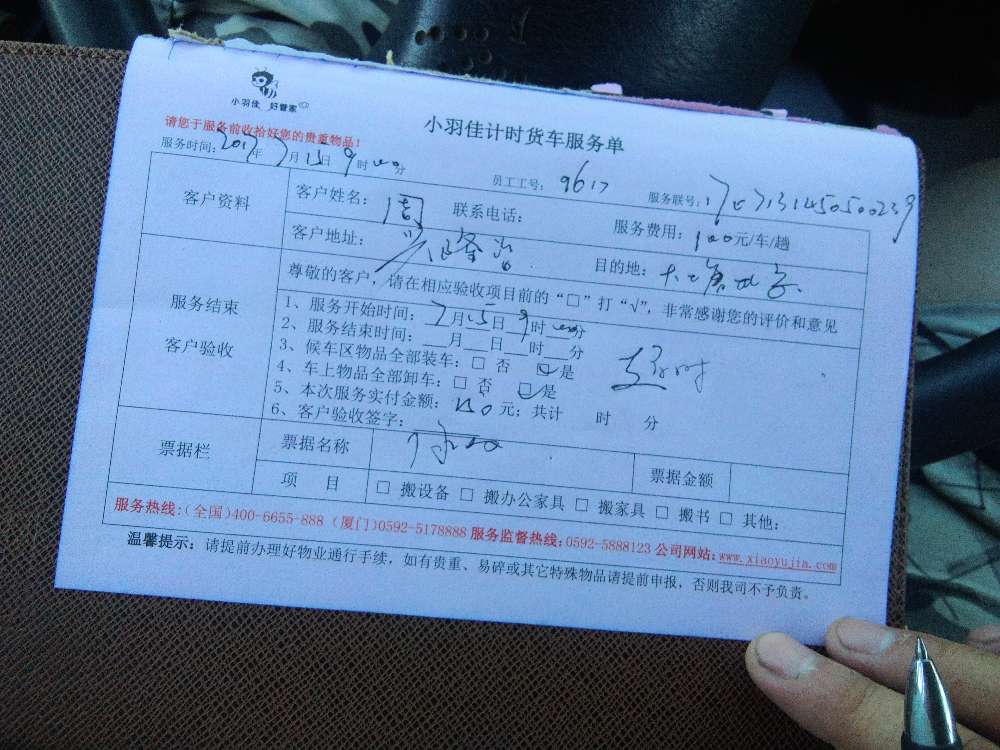 小羽佳 好管家
小羽佳计时货车服务单
请您于服务前收拾好您的贵重物品！
服务时间：2017年7月15日9时00分 员工工号：9617 服务联号：
客户资料 客户姓名：周 联系电话： 服务费用：100元/车/趟
客户地址： 目的地：
服务结束
客户验收
尊敬的客户，请在相应验收项目前的“□”打“√”，非常感谢您的评价和意见
1、服务开始时间：7月15日9时00分
2、服务结束时间：__月__日__时__分
3、候车区物品全部装车：□ 否 ☑是
4、车上物品全部卸车：□ 否 ☑是
5、本次服务实付金额：150元；共计 时 分
6、客户验收签字：
票据栏 票据名称 票据金额
项 目 □ 搬设备 □ 搬办公家具 □ 搬家具 □ 搬书 □ 其他：
服务热线：(全国)400-6655-888 (厦门)0592-5178888 服务监督热线：0592-5888123 公司网站：www.xiaoyujia.com
温馨提示：请提前办理好物业通行手续，如有贵重、易碎或其它特殊物品请提前申报，否则我司不予负责。